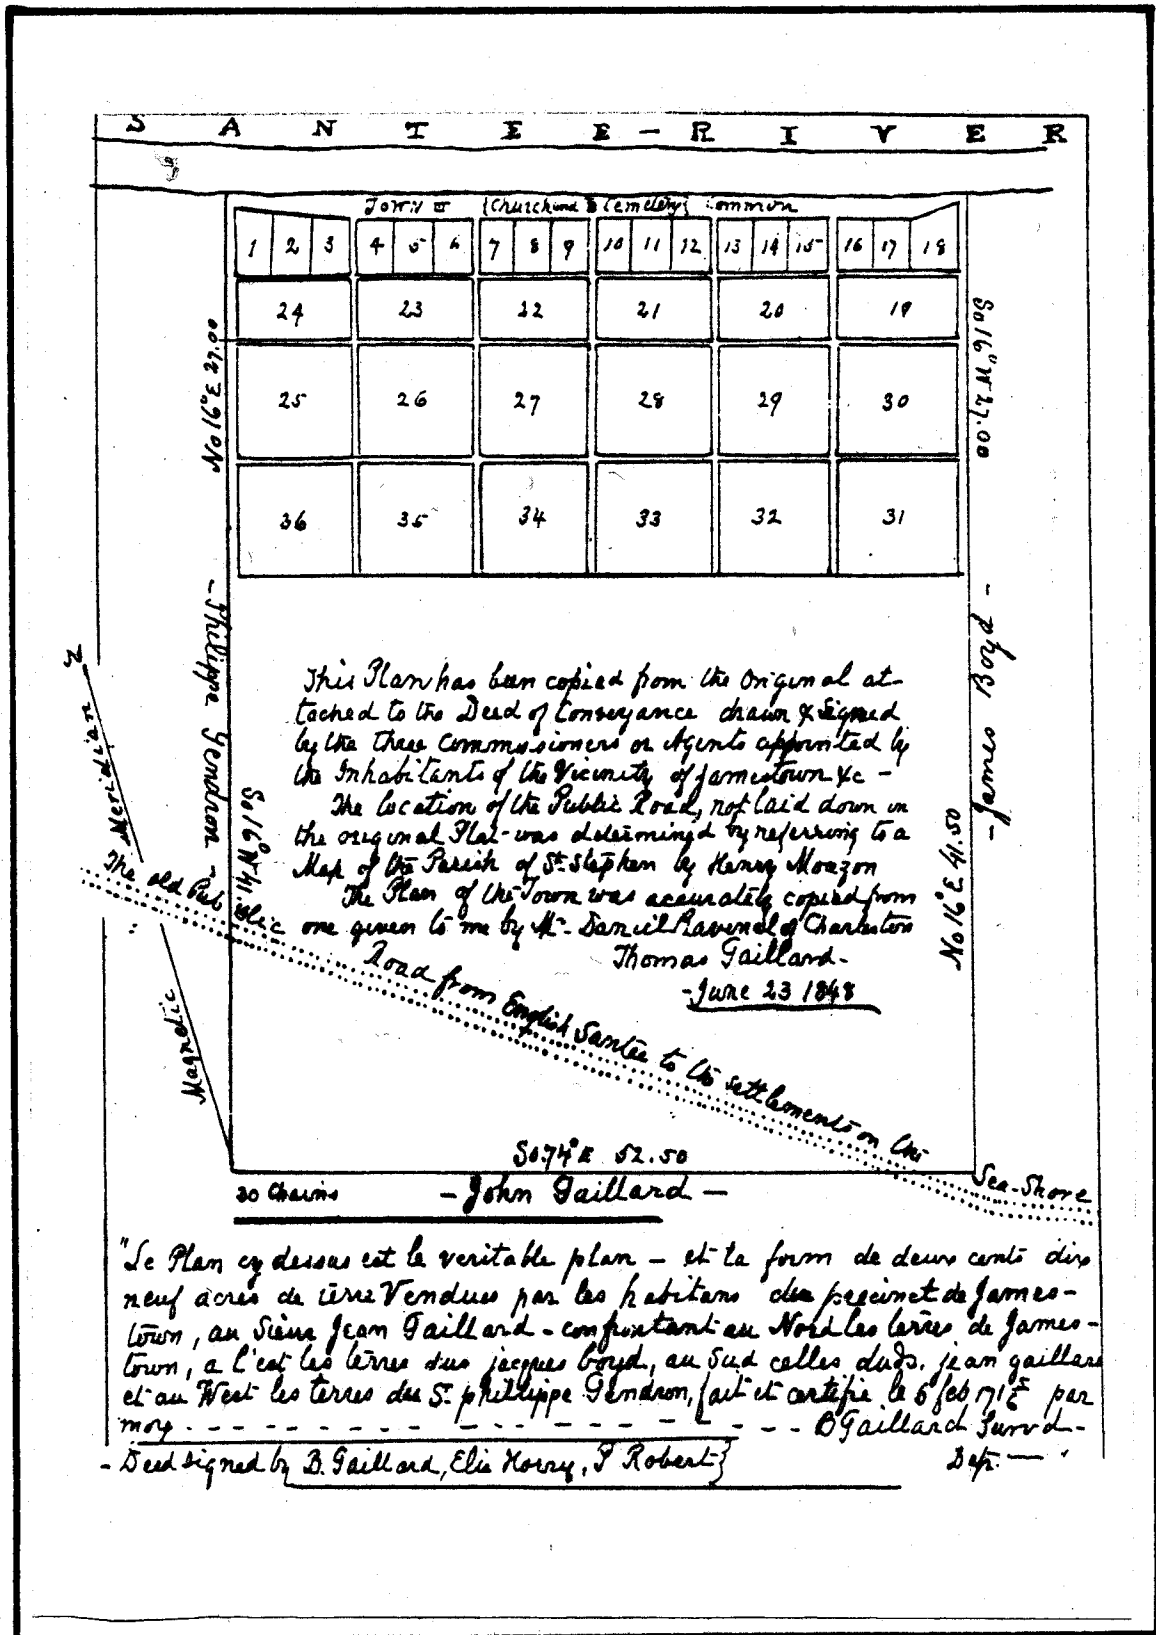 SANTEE-RIVER
Town or {Church and Cemetery} Common
1 2 3 4 5 6 7 8 9 10 11 12 13 14 15 16 17 18
24 23 22 21 20 19
25 26 27 28 29 30
36 35 34 33 32 31
No 16° E 27.00
So 16° W 27.00
- Philippe Gendron -
- James Boyd -
So 16° W 41.50
No 16° E 41.50
Magnetic Meridian
This Plan has been copied from the Original at-
tached to the Deed of Conveyance drawn & Signed
by the three Commissioners or Agents appointed by
the Inhabitants of the Vicinity of Jamestown &c -
The location of the Public Road, not laid down in
the original Plat - was determined by referring to a
Map of the Parish of St. Stephen by Henry Mouzon
The Plan of the Town was accurately copied from
one given to me by Mr. Daniel Ravenel of Charleston
Thomas Gaillard -
- June 23 1848
The old Public Road from English Santee to the settlements on the Sea-Shore
So 74° E 52.50
20 Chains
- John Gaillard -
"Le Plan cy dessus est le veritable plan - et la form de deux cents dix
neuf acres de terre Vendues par les habitans du precinct de James-
town, au Sieur Jean Gaillard - confrontant au Nord les terres de James-
town, a l'est les terres dus jacques boyd, au Sud celles duds. jean gaillard
et au West les terres du Sr. phillippe Gendron, fait et certifie le 6 feb 171 par
moy - - - - - - - - - - - - - - - B Gaillard Survd -
Dep. —
- Deed signed by {B. Gaillard, Elie Horry, P Robert}